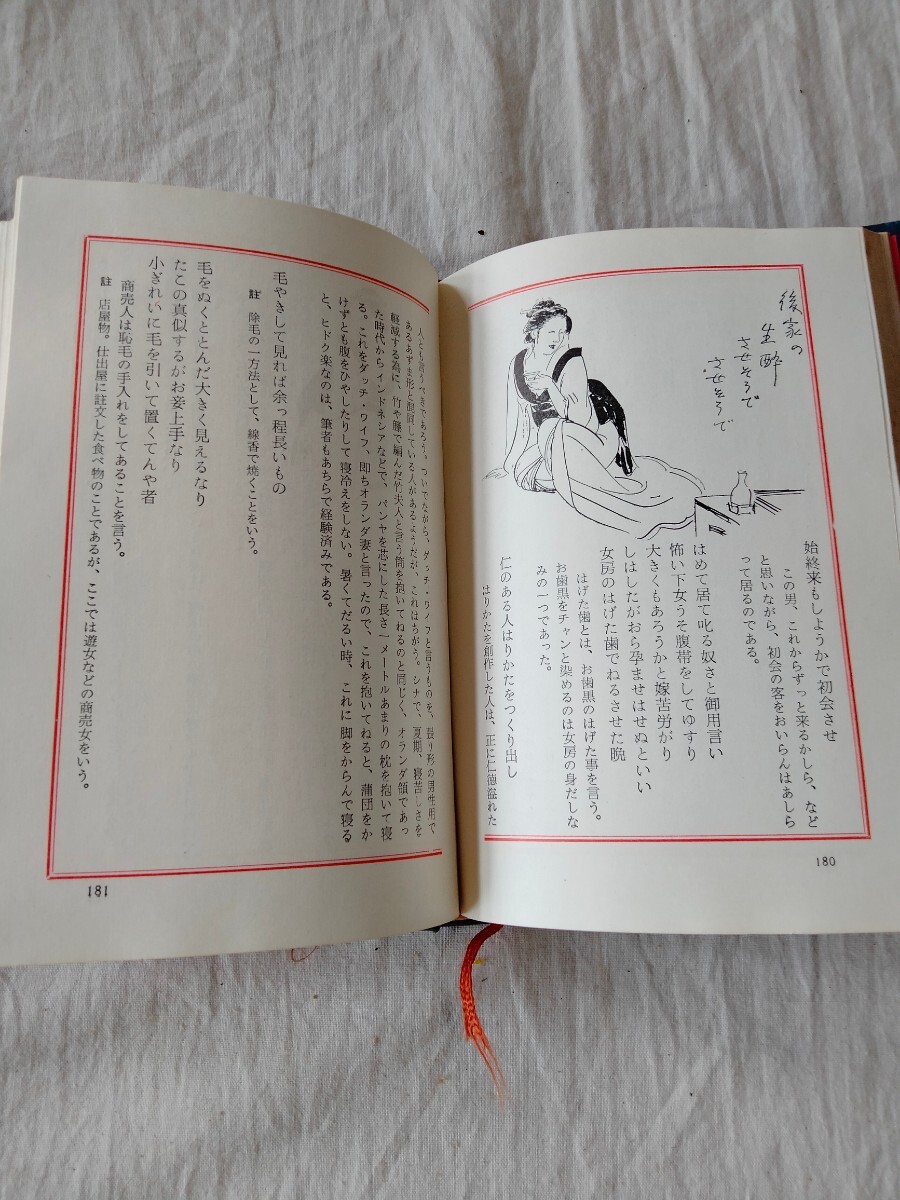 後家の
生酔
させそうで
させそうで
始終来もしようかで初会させ
この男、これからずっと来るかしら、など
と思いながら、初会の客をおいらんはあしら
って居るのである。
はめて居て叱る奴さと御用言い
怖い下女うそ腹帯をしてゆすり
大きくもあろうかと嫁苦労がり
しはしたがおら孕ませはせぬといい
女房のはげた歯でねるさせた晩
はげた歯とは、お歯黒のはげた事を言う。
お歯黒をチャンと染めるのは女房の身だしな
みの一つであった。
仁のある人はりかたをつくり出し
はりかたを創作した人は、正に仁徳溢れた
180
人とも言うべきであろう。ついでながら、ダッチ・ワイフと言うものを、張り形の男性用で
あるあずま形と混同している人があるようだが、これはちがう。シナで、夏期、寝苦しさを
軽減する為に、竹や籐で編んだ竹夫人と言う筒を抱いてねるのと同じく、オランダ領であっ
た時代からインドネシアなどで、パンヤを芯にした長さ一メートルあまりの枕を抱いて寝
る。これをダッチ・ワイフ、即ちオランダ妻と言ったので、これを抱いてねると、蒲団をか
けずとも腹をひやしたりして寝冷えをしない。暑くてだるい時、これに脚をからんで寝る
と、ヒドク楽なのは、筆者もあちらで経験済みである。
毛やきして見れば余っ程長いもの
註 除毛の一方法として、線香で焼くことをいう。
毛をぬくととんだ大きく見えるなり
たこの真似するがお妾上手なり
小ぎれいに毛を引いて置くてんや者
商売人は恥毛の手入れをしてあることを言う。
註 店屋物。仕出屋に註文した食べ物のことであるが、ここでは遊女などの商売女をいう。
181